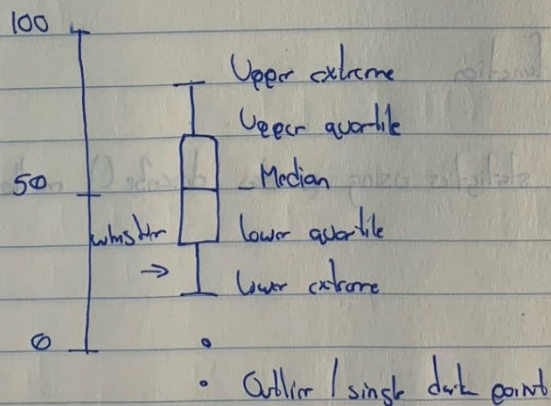 100
Upper extreme
Upper quartile
50
Median
whisker
lower quartile
lower extreme
0
Outlier / single data point